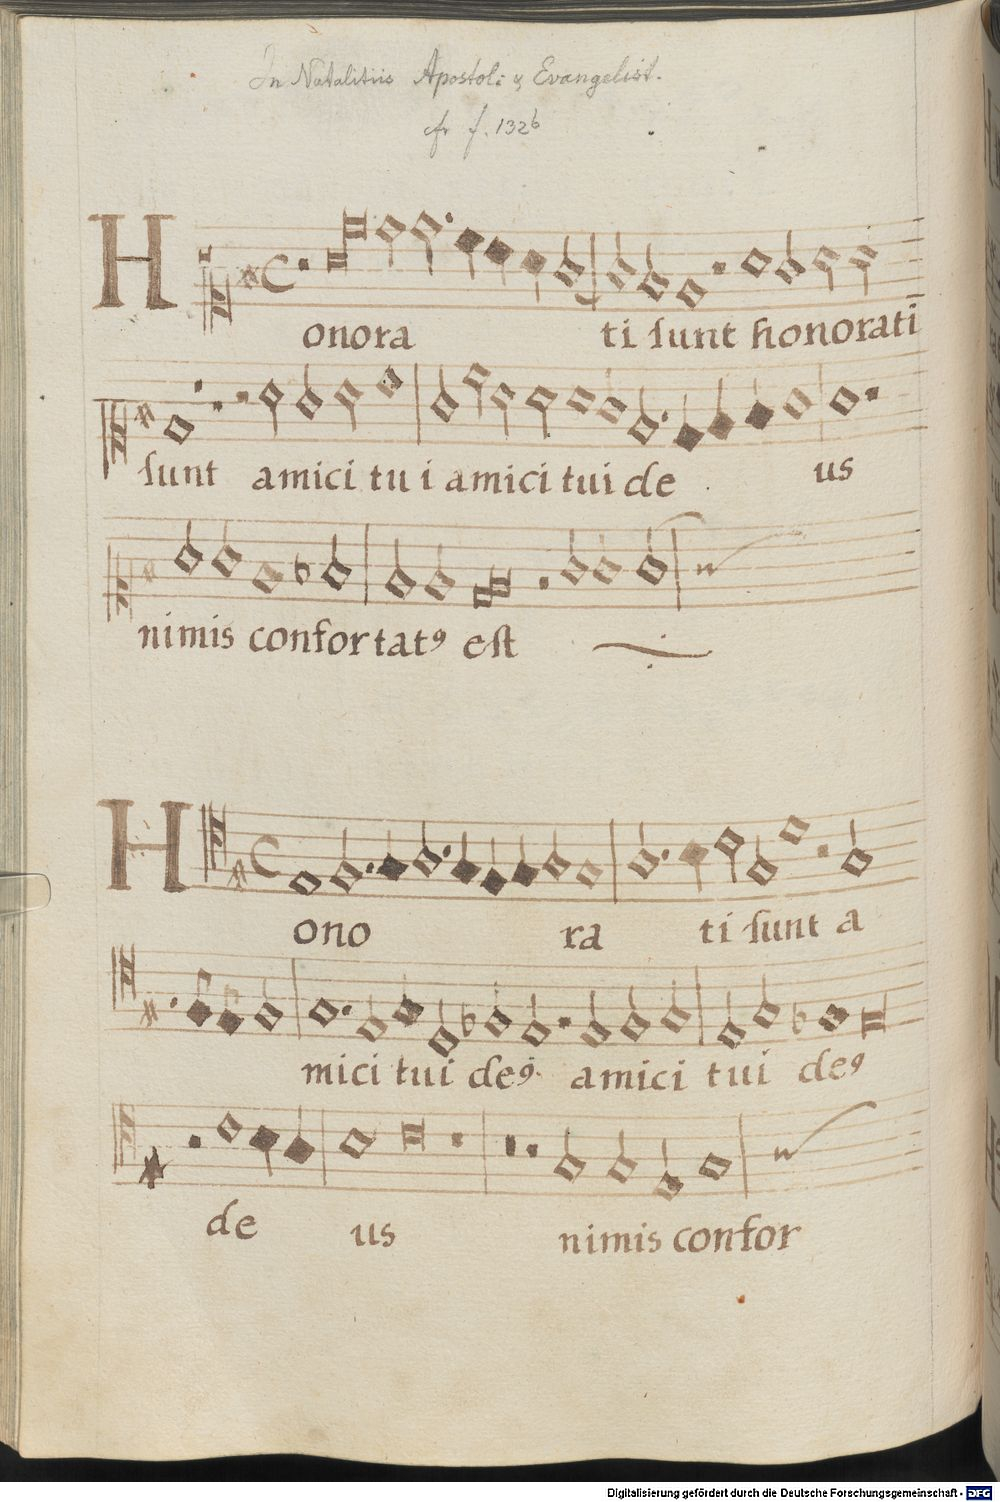 In Natalitiis Apostol: & Evangelist.
cfr f. 132b
Honora ti sunt honorati
sunt amici tui amici tui de us
nimis confortatꝰ est
Hono ra ti sunt a
mici tui deꝰ amici tui deꝰ
de us nimis confor
Digitalisierung gefördert durch die Deutsche Forschungsgemeinschaft - DFG